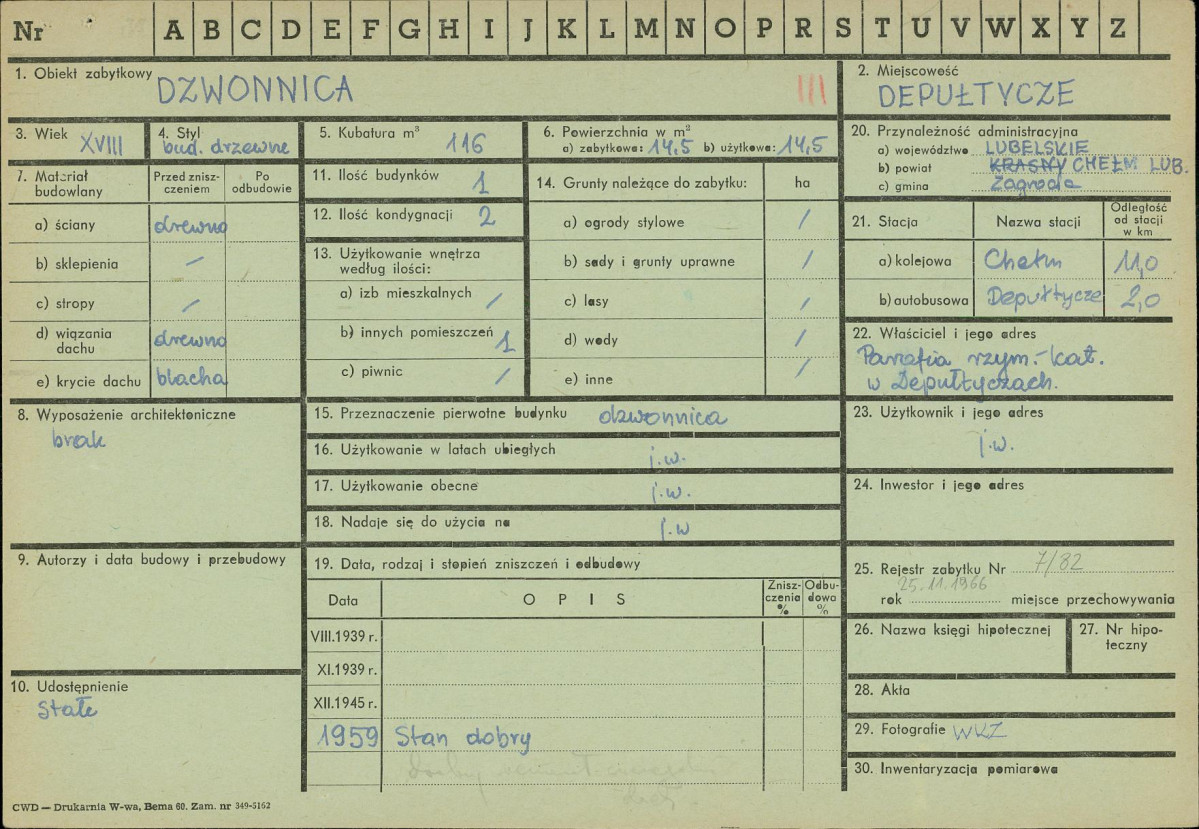 Nr A B C D E F G H I J K L M N O P R S T U V W X Y Z
1. Obiekt zabytkowy DZWONNICA III
2. Miejscowość
DEPUŁTYCZE
3. Wiek XVIII
4. Styl
bud. drzewne
5. Kubatura m³ 116
6. Powierzchnia w m²
a) zabytkowa: 14,5 b) użytkowa: 14,5
7. Materiał budowlany
Przed zniszczeniem
Po odbudowie
a) ściany drewno
b) sklepienia /
c) stropy /
d) wiązania dachu drewno
e) krycie dachu blacha
8. Wyposażenie architektoniczne
brak
9. Autorzy i data budowy i przebudowy
10. Udostępnienie
Stałe
11. Ilość budynków 1
12. Ilość kondygnacji 2
13. Użytkowanie wnętrza
według ilości:
a) izb mieszkalnych /
b) innych pomieszczeń 1
c) piwnic /
14. Grunty należące do zabytku: ha
a) ogrody stylowe /
b) sady i grunty uprawne /
c) lasy /
d) wody /
e) inne /
15. Przeznaczenie pierwotne budynku dzwonnica
16. Użytkowanie w latach ubiegłych j.w.
17. Użytkowanie obecne j.w.
18. Nadaje się do użycia na j.w
19. Data, rodzaj i stopień zniszczeń i odbudowy
Data OPIS Zniszczenia % Odbudowa %
VIII.1939 r.
XI.1939 r.
XII.1945 r.
1959 Stan dobry
20. Przynależność administracyjna
a) województwo LUBELSKIE
b) powiat KRASNY CHEŁM LUB.
c) gmina Zagroda
21. Stacja Nazwa stacji Odległość od stacji w km
a) kolejowa Chełm 11,0
b) autobusowa Depułtycze 2,0
22. Właściciel i jego adres
Parafia rzym.-kat.
w Depułtyczach.
23. Użytkownik i jego adres
j.w.
24. Inwestor i jego adres
25. Rejestr zabytku Nr 7/82
25.11.1966
rok miejsce przechowywania
26. Nazwa księgi hipotecznej
27. Nr hipoteczny
28. Akta
29. Fotografie WKZ
30. Inwentaryzacja pomiarowa
CWD — Drukarnia W-wa, Bema 60. Zam. nr 349-5162